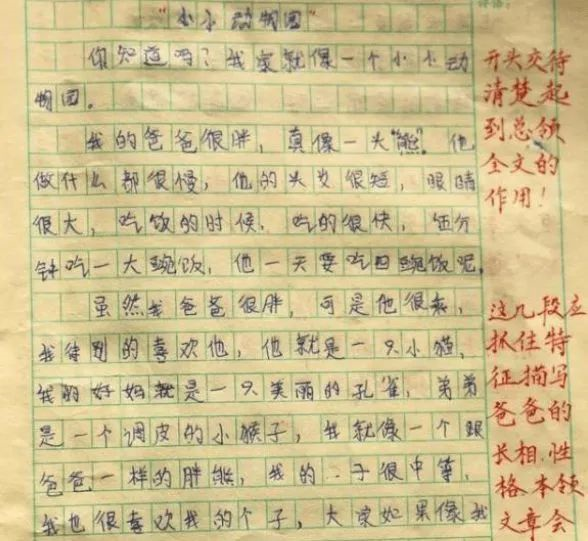 “小小动物园”
你知道吗？我家就像一个小小动
物园。
我的爸爸很胖，真像一头“熊”。他
做什么都很慢，他的头发很短，眼睛
很大，吃饭的时候，吃的很快，伍分
钟吃一大碗饭，他一天要吃四碗饭呢。
虽然我爸爸很胖，可是他很亲，
我特别的喜欢他，他就是一只小猫，
我的好妈就是一只美丽的孔雀，弟弟
是一个调皮的小猴子，我就像一个跟
爸爸一样的胖熊，我的 子很中等，
我也很喜欢我的个子，大家如果像我
开头交待
清楚起
到总领
全文的
作用！
这几段应
抓住特
征描写
爸爸的
长相、性
格本领
文章会